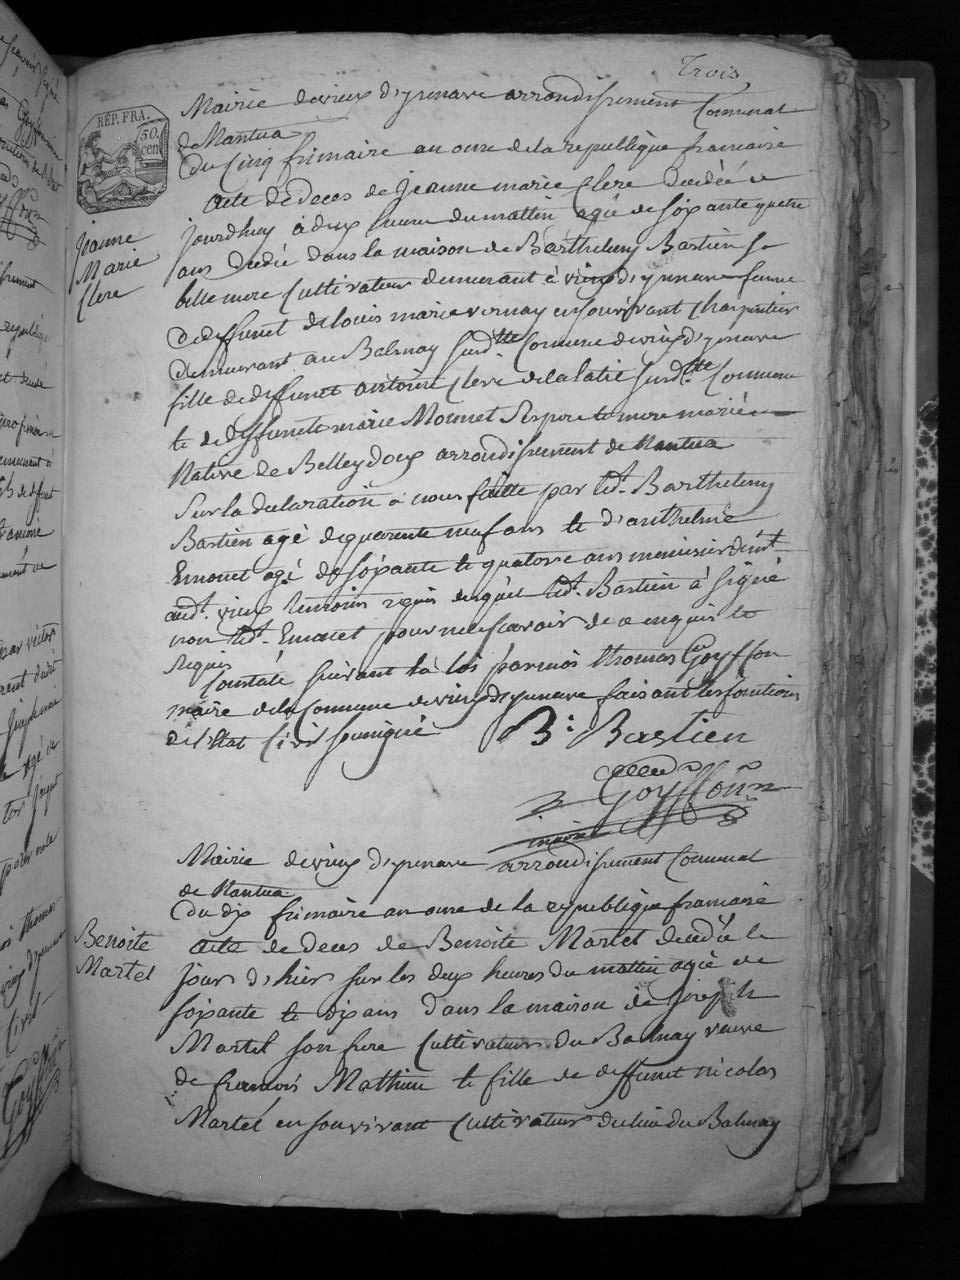 Trois
Mairie de vieux d'yzenave arrondissement Communal
de Mantua
REP. FRA.
50.
cen
Du Cinq frimaire an onze de la republique francaise
Acte de Deces de Jeanne marie Clere Decedée ce
Jeanne
Marie
Clere
jourdhuy à deux heure du mattin agée de soixante quatre
ans decedé dans la maison de Barthelemy Bastien sa
belle mere Cultivateur demeurant à vieux d'yzenave femme
de deffunet de louis marie vernay en sonvivant Charpentier
demeurant au Balmay susd.tte Commune devieux d'yzenave
fille de deffunet antoine Clere de la latie susd.tte Commune
te de deffunete marie Monnet Ses pere te mere mariée
Native de Belleydoux arrondissement de Mantua
Sur la declaration à nous faitte par led.t Barthelemy
Bastien agé de quarente neuf ans te d'anthelme
Emonet agé de soixante te quatorze ans menuisier demt
aud.t vieux temoins requis enquel led.t Bastien à Signé
non led.t Emonet pour ne scavoir de ce enquis te
requis
Constaté suivant la loi par moi thomas Goyffon
maire de la Commune devieux d'yzenave faisant les fonctions
de l'Etat Civil soussigné B: Bastien
Goyffon
maire
Mairie devieux d'yzenave arrondissement Communal
de Nantua
Du dix frimaire an onze de la republique francaise
Benoite
Martel
Acte de deces de Benoite Martel decedée le
jour d'hier sur les deux heures du mattin agée de
soixante te dix ans dans la maison de joseph
Martel son frere Cultivateur du Balmay veuve
de francois Mathieu te fille de deffunet nicolas
Martel en sonvivant Cultivateur dulieu du Balmay